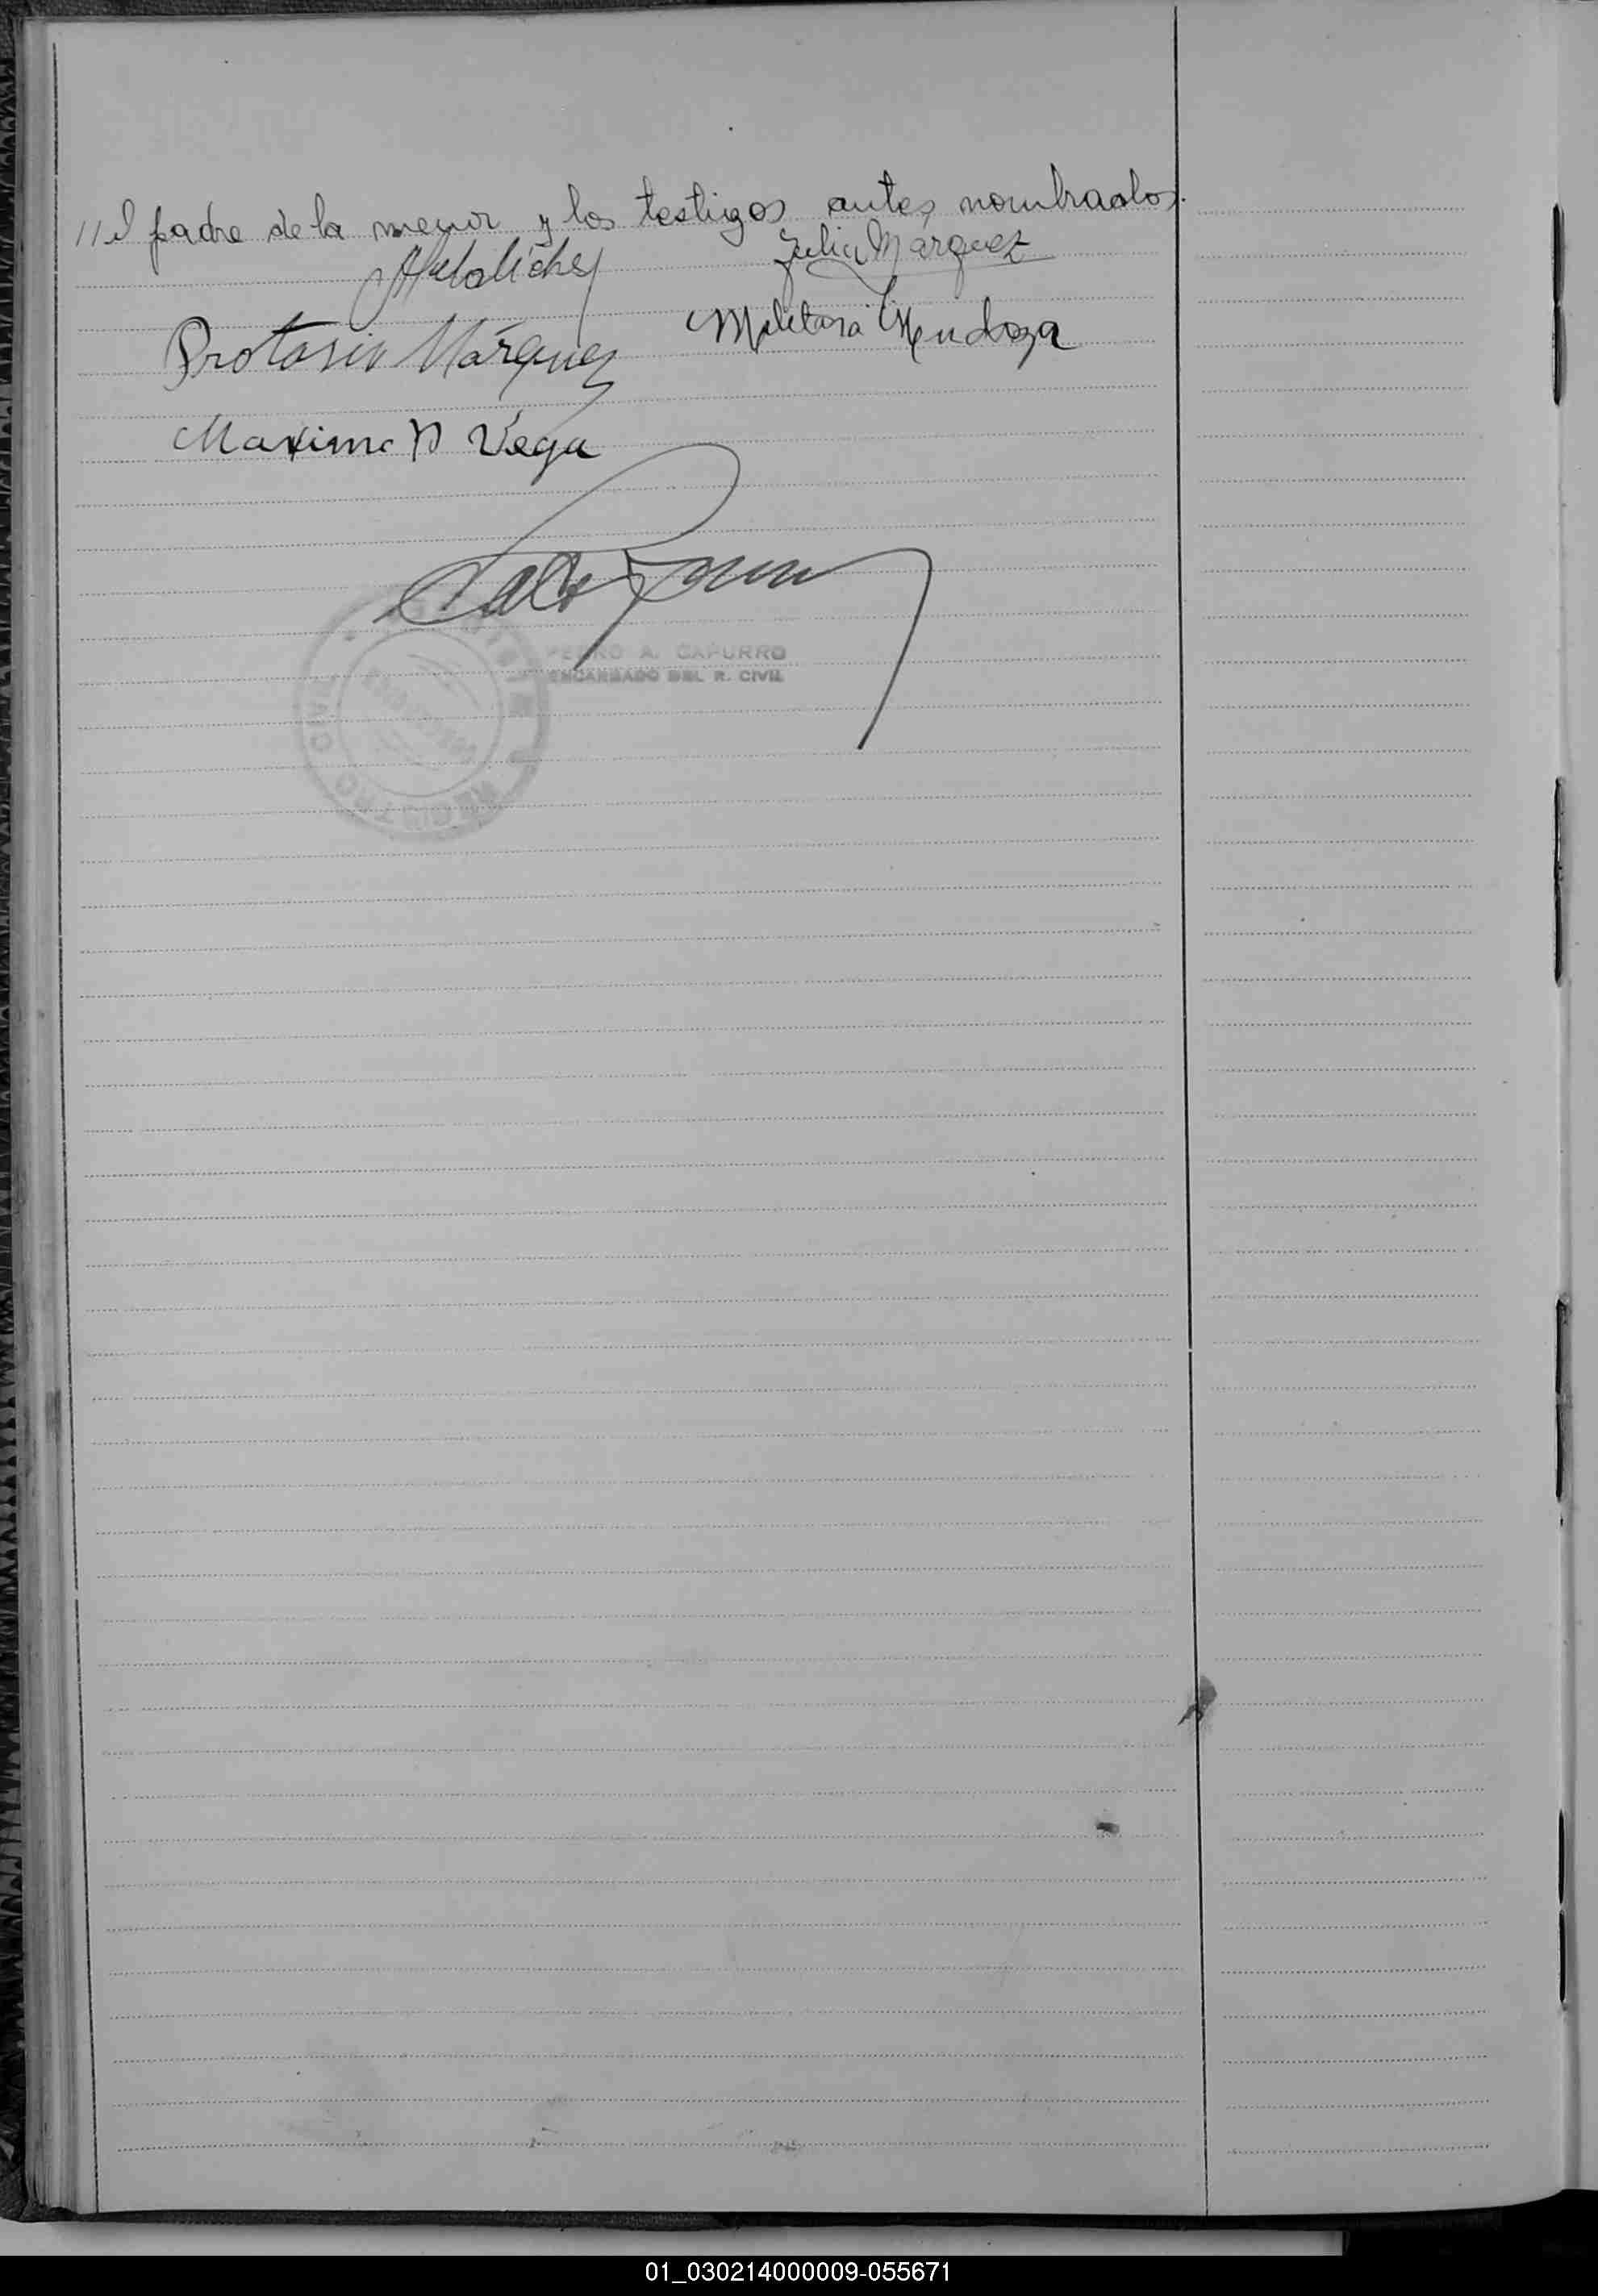 //el padre de la menor y los testigos antes nombrados.
Julia Márquez
Protasio Márquez
Melitona Mendoza
Maxima D Vega
PEDRO A. CAPURRO
ENCARGADO DEL R. CIVIL
REGISTRO CIVIL
01_030214000009-055671